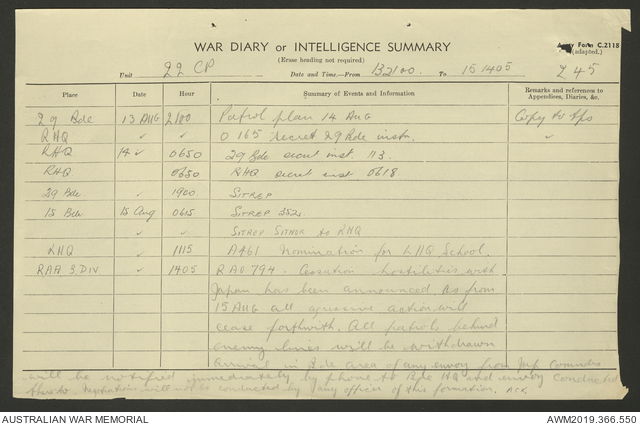 Army Form C.2118
(adapted.)
WAR DIARY or INTELLIGENCE SUMMARY
(Erase heading not required)
Unit 22 CP Date and Time.—From 132100. To 151405 Z 45
Place Date Hour Summary of Events and Information Remarks and references to Appendices, Diaries, &c.
29 Bde 13 AUG 2100 Patrol plan 14 Aug Copy to tps
RHQ ✓ ✓ O 165 secret 29 Bde instr. ✓
RHQ 14 ✓ 0650 29 Bde inst. 113.
RHQ 0650 RHQ inst 0618
29 Bde ✓ 1900 SITREP
15 Bde 15 Aug 0615 SITREP 352.
✓ ✓ SITREP to RHQ
RHQ ✓ 1115 A461 Nomination for LHQ School.
RAA 3 DIV ✓ 1405 RAO 794. Cessation hostilities with
Japan has been announced. As from
15 AUG all agressive action will
cease forthwith. All patrols behind
enemy lines will be withdrawn
Arrival in Bde area of any envoy from Jap
will be notified immediately by phone to HQ and envoy conducted
thereto negotiations will not be conducted by any officer of this formation.
AUSTRALIAN WAR MEMORIAL
AWM2019.366.550